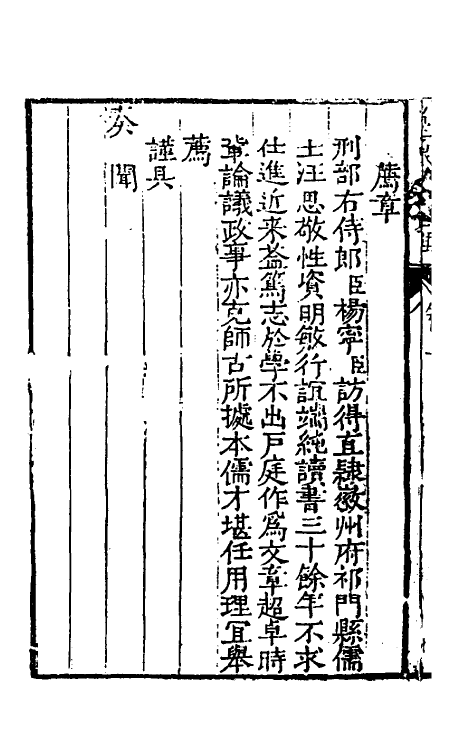 薦章
刑部右侍郎臣楊寧臣訪得直隸徽州府祁門縣儒
士汪思敬性資明敏行誼端純讀書三十餘年不求
仕進近来益篤志於學不出戸庭作爲文章超卓時
輩論議政事亦克師古所㨿本儒才堪任用理冝舉
薦
謹具
奏聞